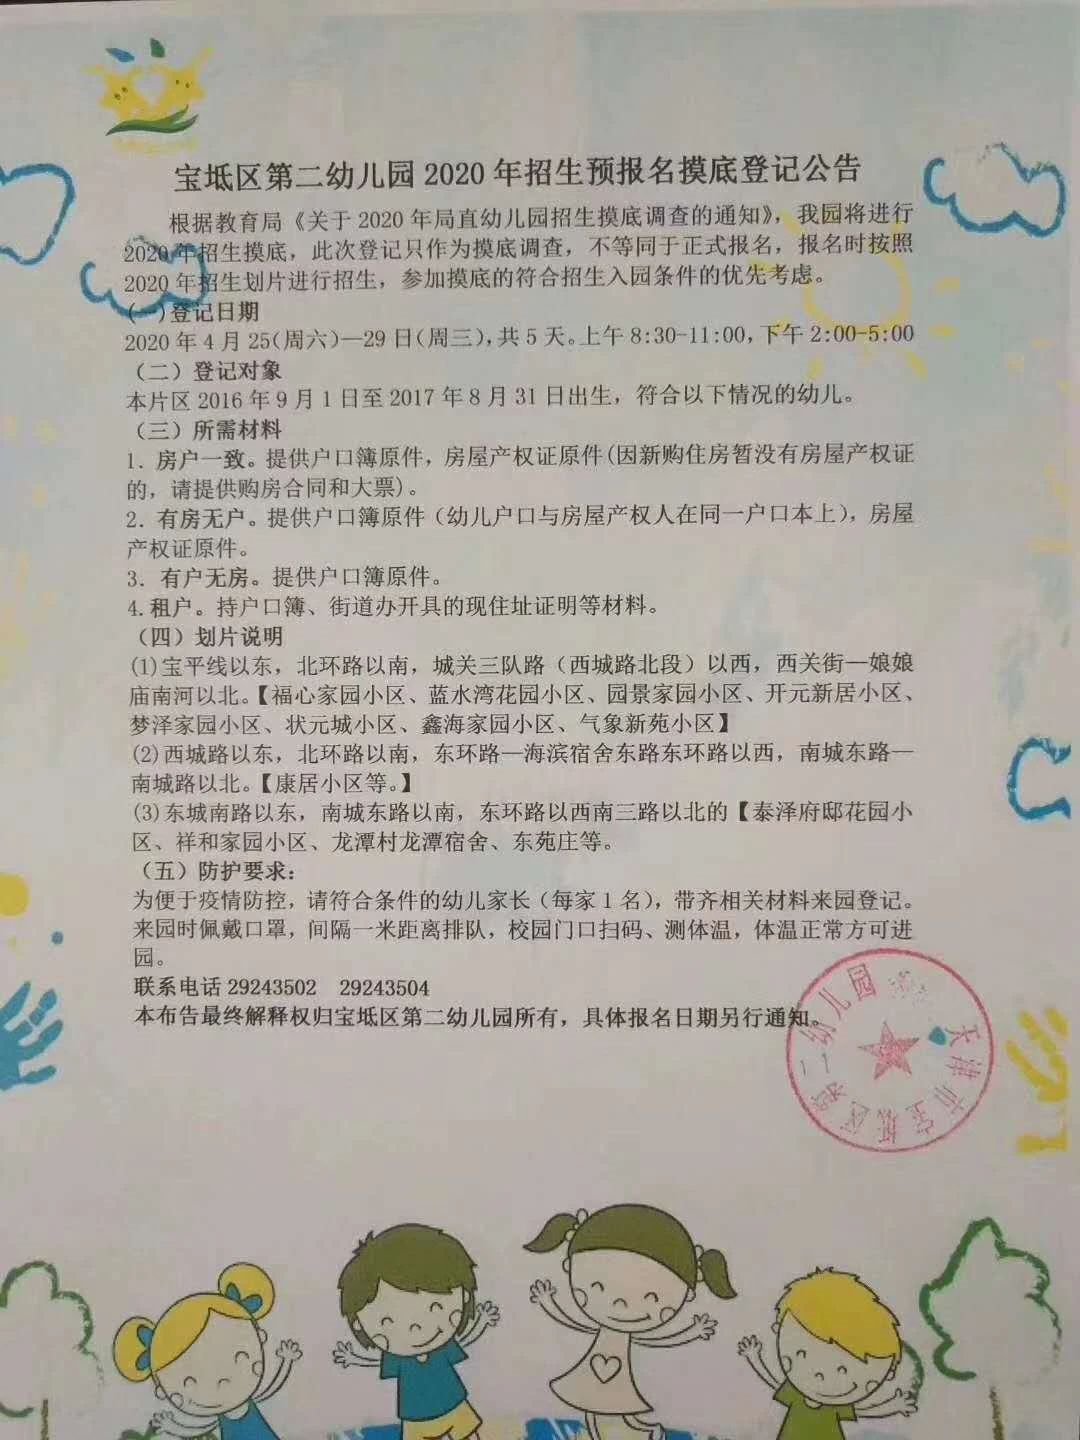 宝坻区第二幼儿园 2020 年招生预报名摸底登记公告
根据教育局《关于 2020 年局直幼儿园招生摸底调查的通知》，我园将进行
2020 年招生摸底，此次登记只作为摸底调查，不等同于正式报名，报名时按照
2020 年招生划片进行招生，参加摸底的符合招生入园条件的优先考虑。
(一)登记日期
2020 年 4 月 25(周六)—29 日(周三)，共 5 天。上午 8:30-11:00，下午 2:00-5:00
（二）登记对象
本片区 2016 年 9 月 1 日至 2017 年 8 月 31 日出生，符合以下情况的幼儿。
（三）所需材料
1. 房户一致。提供户口簿原件，房屋产权证原件(因新购住房暂没有房屋产权证
的，请提供购房合同和大票)。
2. 有房无户。提供户口簿原件（幼儿户口与房屋产权人在同一户口本上），房屋
产权证原件。
3. 有户无房。提供户口簿原件。
4. 租户。持户口簿、街道办开具的现住址证明等材料。
（四）划片说明
(1)宝平线以东，北环路以南，城关三队路（西城路北段）以西，西关街—娘娘
庙南河以北。【福心家园小区、蓝水湾花园小区、园景家园小区、开元新居小区、
梦泽家园小区、状元城小区、鑫海家园小区、气象新苑小区】
(2)西城路以东，北环路以南，东环路—海滨宿舍东路东环路以西，南城东路—
南城路以北。【康居小区等。】
(3)东城南路以东，南城东路以南，东环路以西南三路以北的【泰泽府邸花园小
区、祥和家园小区、龙潭村龙潭宿舍、东苑庄等。
（五）防护要求：
为便于疫情防控，请符合条件的幼儿家长（每家 1 名），带齐相关材料来园登记。
来园时佩戴口罩，间隔一米距离排队，校园门口扫码、测体温，体温正常方可进
园。
联系电话 29243502 29243504
本布告最终解释权归宝坻区第二幼儿园所有，具体报名日期另行通知。
天津市宝坻区第二幼儿园